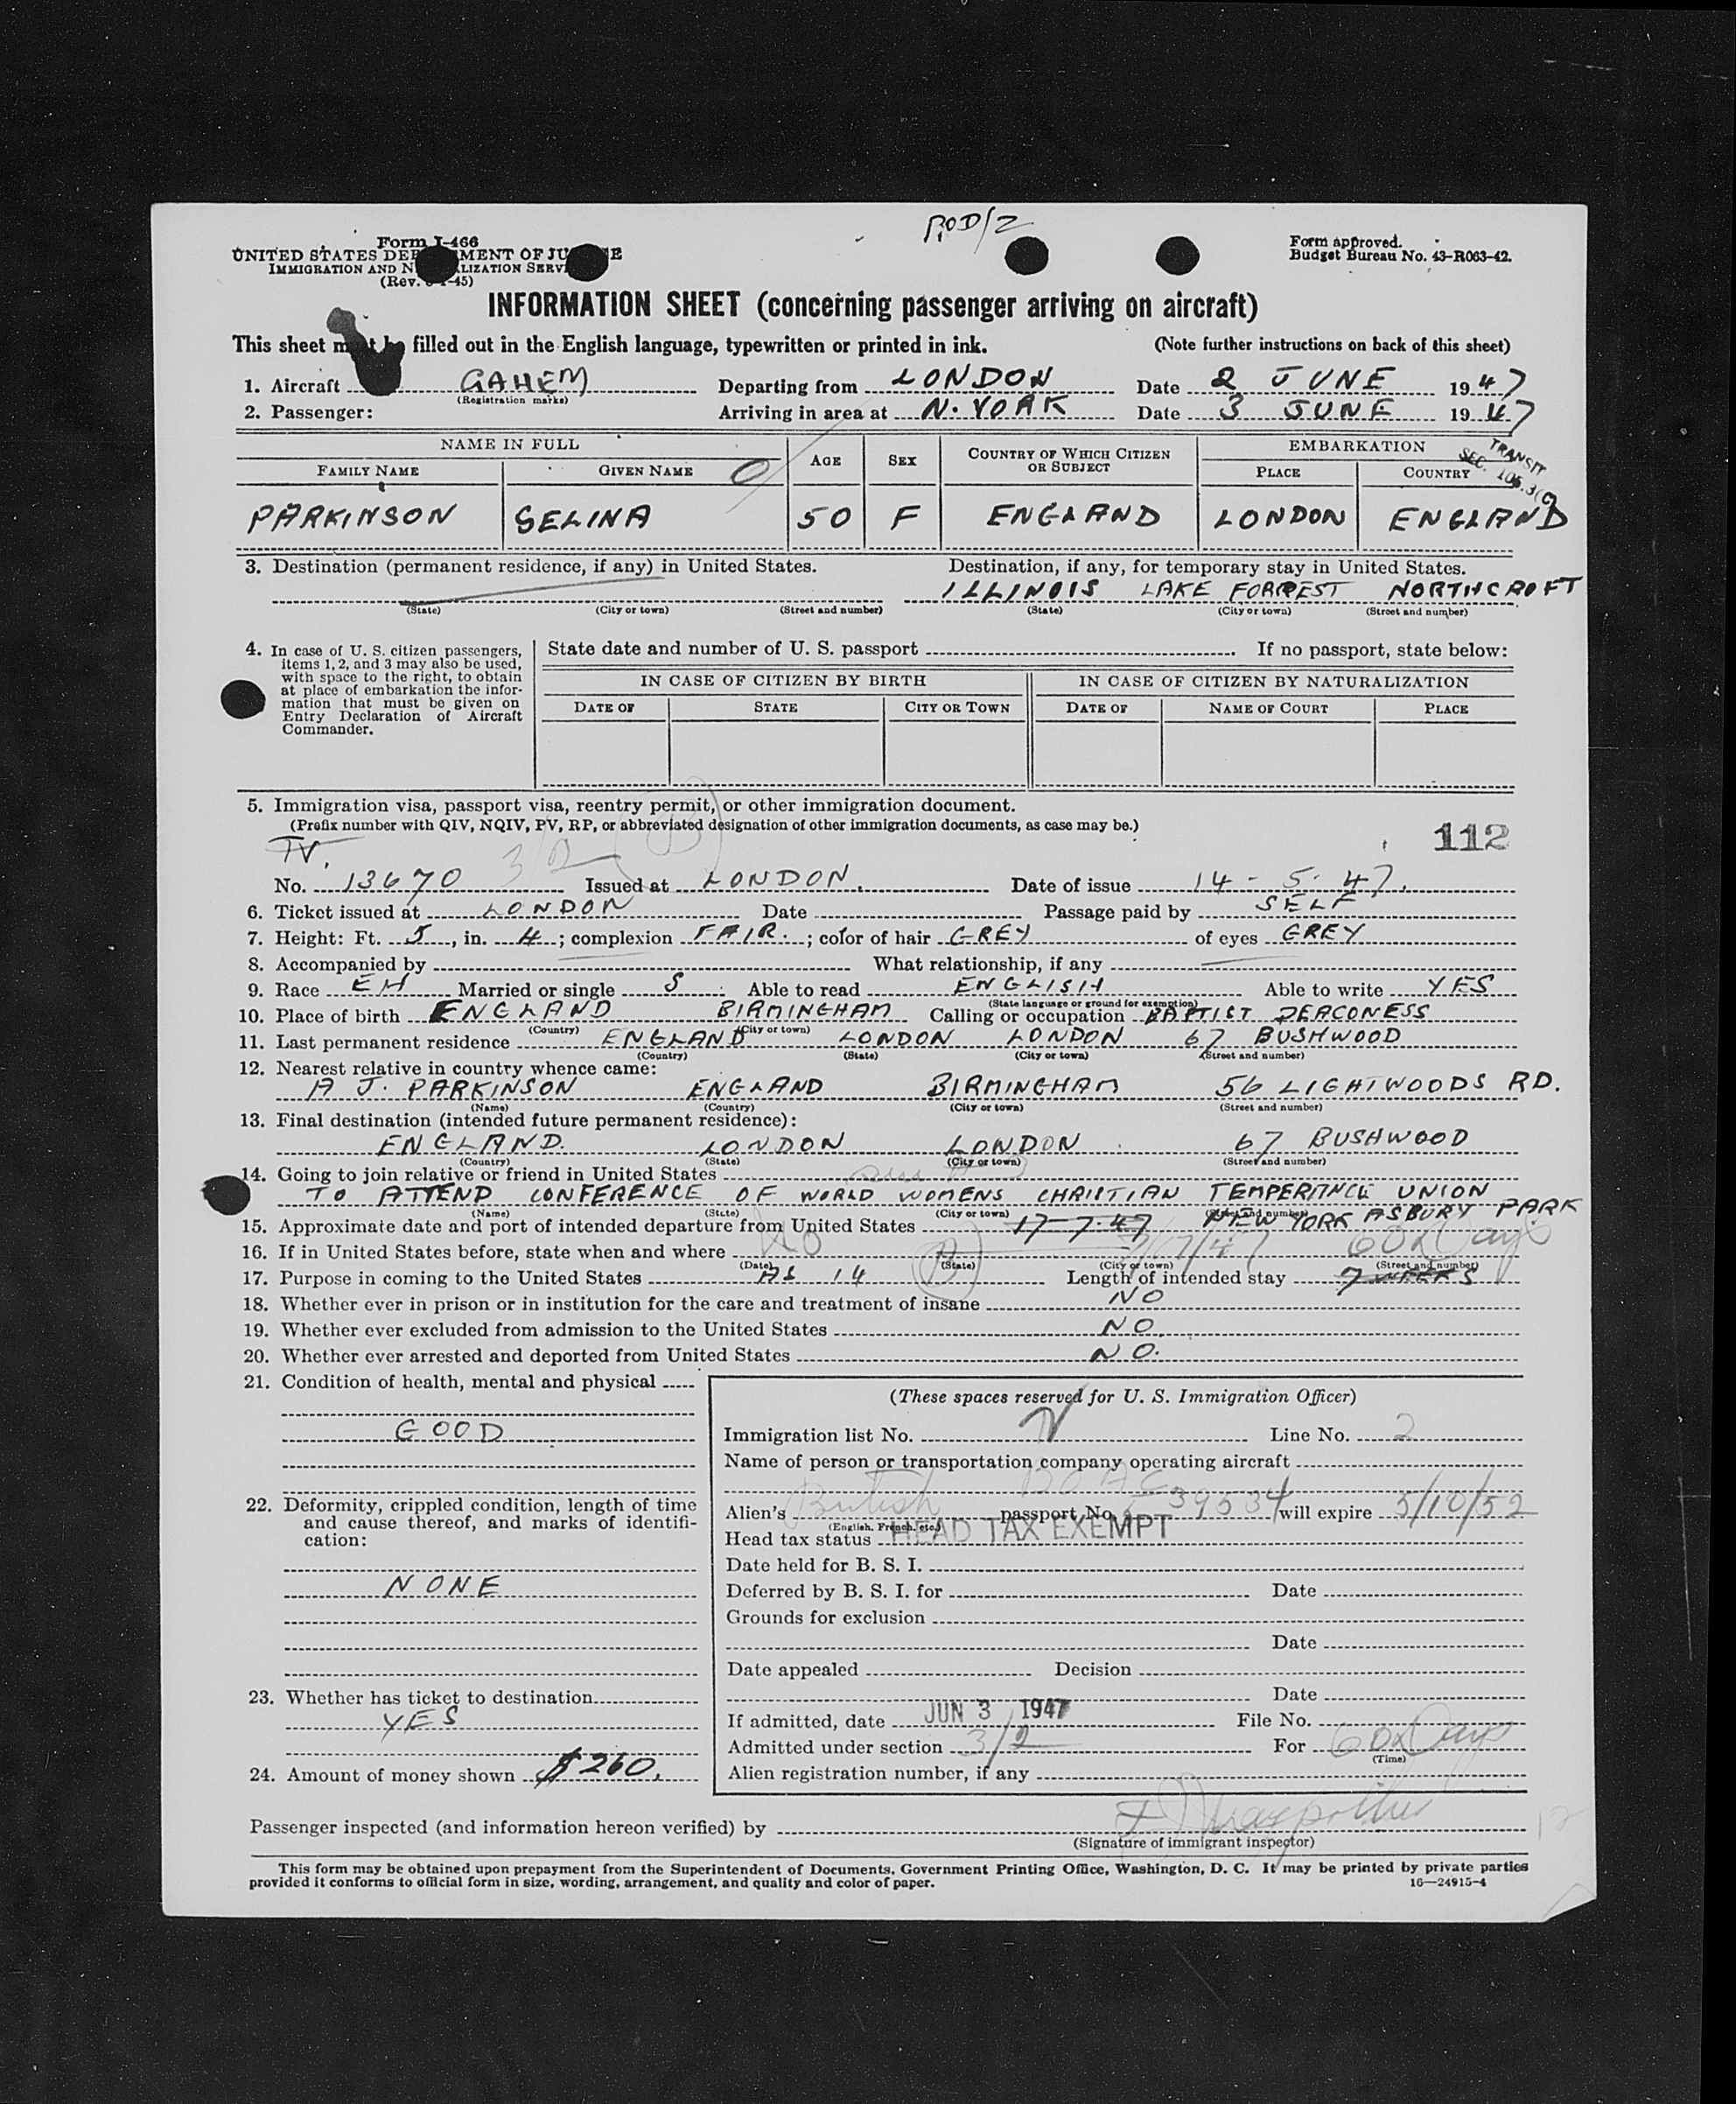 ROD/2
Form I-466
UNITED STATES DEP MENT OF JU E
IMMIGRATION AND N LIZATION SERVI
(Rev. -45)
Form approved.
Budget Bureau No. 43-R063-42.
INFORMATION SHEET (concerning passenger arriving on aircraft)
This sheet must be filled out in the English language, typewritten or printed in ink. (Note further instructions on back of this sheet)
1. Aircraft GAHEM Departing from LONDON Date 2 JUNE 1947
(Registration marks)
2. Passenger: Arriving in area at N. YORK Date 3 JUNE 1947
NAME IN FULL AGE SEX COUNTRY OF WHICH CITIZEN OR SUBJECT EMBARKATION
FAMILY NAME GIVEN NAME PLACE COUNTRY
TRANSIT
SEC. 105.3(C)
PARKINSON SELINA 50 F ENGLAND LONDON ENGLAND
3. Destination (permanent residence, if any) in United States. Destination, if any, for temporary stay in United States.
ILLINOIS LAKE FORREST NORTHCROFT
(State) (City or town) (Street and number) (State) (City or town) (Street and number)
4. In case of U. S. citizen passengers,
items 1, 2, and 3 may also be used,
with space to the right, to obtain
at place of embarkation the infor-
mation that must be given on
Entry Declaration of Aircraft
Commander.
State date and number of U. S. passport If no passport, state below:
IN CASE OF CITIZEN BY BIRTH IN CASE OF CITIZEN BY NATURALIZATION
DATE OF STATE CITY OR TOWN DATE OF NAME OF COURT PLACE
5. Immigration visa, passport visa, reentry permit, or other immigration document.
(Prefix number with QIV, NQIV, PV, RP, or abbreviated designation of other immigration documents, as case may be.)
112
TV. 3/2 (B)
No. 13670 Issued at LONDON. Date of issue 14-5-47.
6. Ticket issued at LONDON Date Passage paid by SELF
7. Height: Ft. 5, in. 4; complexion FAIR.; color of hair GREY of eyes GREY
8. Accompanied by What relationship, if any
9. Race EH Married or single S Able to read ENGLISH Able to write YES
(State language or ground for exemption)
10. Place of birth ENGLAND BIRMINGHAM Calling or occupation BAPTIST DEACONESS
(Country) (City or town)
11. Last permanent residence ENGLAND LONDON LONDON 67 BUSHWOOD
(Country) (State) (City or town) (Street and number)
12. Nearest relative in country whence came:
A J. PARKINSON ENGLAND BIRMINGHAM 56 LIGHTWOODS RD.
(Name) (Country) (City or town) (Street and number)
13. Final destination (intended future permanent residence):
ENGLAND. LONDON LONDON 67 BUSHWOOD
(Country) (State) (City or town) (Street and number)
14. Going to join relative or friend in United States
TO ATTEND CONFERENCE OF WORLD WOMENS CHRISTIAN TEMPERANCE UNION
(Name) (State) (City or town) (Street and number)
ASBURY PARK
15. Approximate date and port of intended departure from United States 17-7-47 NEW YORK
16. If in United States before, state when and where No (B) 7/17/47 60x Days
(Date) (State) (City or town) (Street and number)
17. Purpose in coming to the United States AS 14 Length of intended stay 7 WEEKS
18. Whether ever in prison or in institution for the care and treatment of insane NO
19. Whether ever excluded from admission to the United States NO.
20. Whether ever arrested and deported from United States NO.
21. Condition of health, mental and physical
GOOD
22. Deformity, crippled condition, length of time
and cause thereof, and marks of identifi-
cation:
NONE
23. Whether has ticket to destination
YES
24. Amount of money shown $260.
(These spaces reserved for U. S. Immigration Officer)
Immigration list No. Line No. 2
Name of person or transportation company operating aircraft
BOAC
Alien's British passport No. 39534 will expire 5/10/52
(English, French, etc.)
Head tax status HEAD TAX EXEMPT
Date held for B. S. I.
Deferred by B. S. I. for Date
Grounds for exclusion
Date
Date appealed Decision
Date
If admitted, date JUN 3 1947 File No.
Admitted under section 3/2 For 60x Days
(Time)
Alien registration number, if any
Passenger inspected (and information hereon verified) by
(Signature of immigrant inspector)
This form may be obtained upon prepayment from the Superintendent of Documents, Government Printing Office, Washington, D. C. It may be printed by private parties
provided it conforms to official form in size, wording, arrangement, and quality and color of paper. 16—24915-4